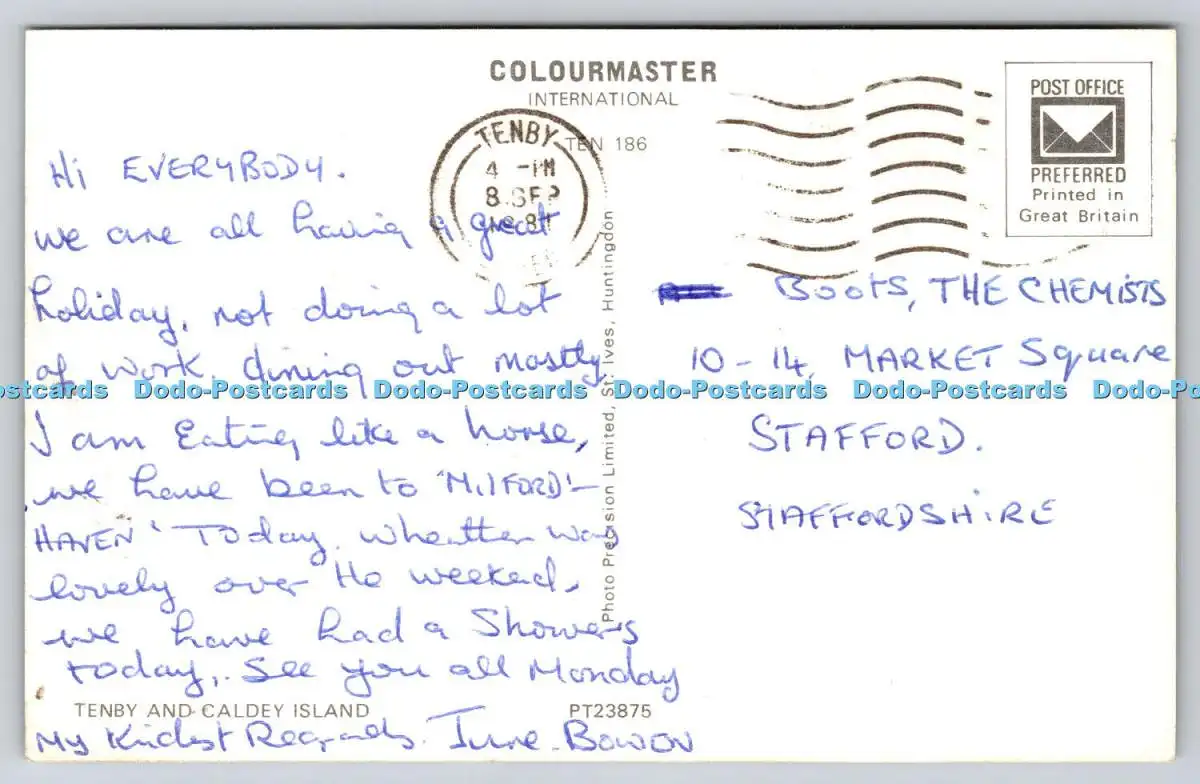 COLOURMASTER
INTERNATIONAL
TEN 186
TENBY
4 - PM
8 SEP
POST OFFICE
PREFERRED
Printed in
Great Britain
Hi EVERYBODY.
we are all having a great
holiday, not doing a lot
of work, dining out mostly
I am Eating like a horse,
we have been to 'MilFORD'-
HAVEN' Today. wheatter was
lovely over the weeked,
we have had a Showers
today,. See you all Monday
My Kindest Regards. June. Bowen
Boots, THE CHEMISTS
10-14, MARKET Square
STAFFORD.
STAFFORDSHIRE
Photo Precision Limited, St. Ives, Huntingdon
TENBY AND CALDEY ISLAND
PT23875
ostcards Dodo-Postcards Dodo-Postcards Dodo-Postcards Dodo-Postcards Dodo-Po